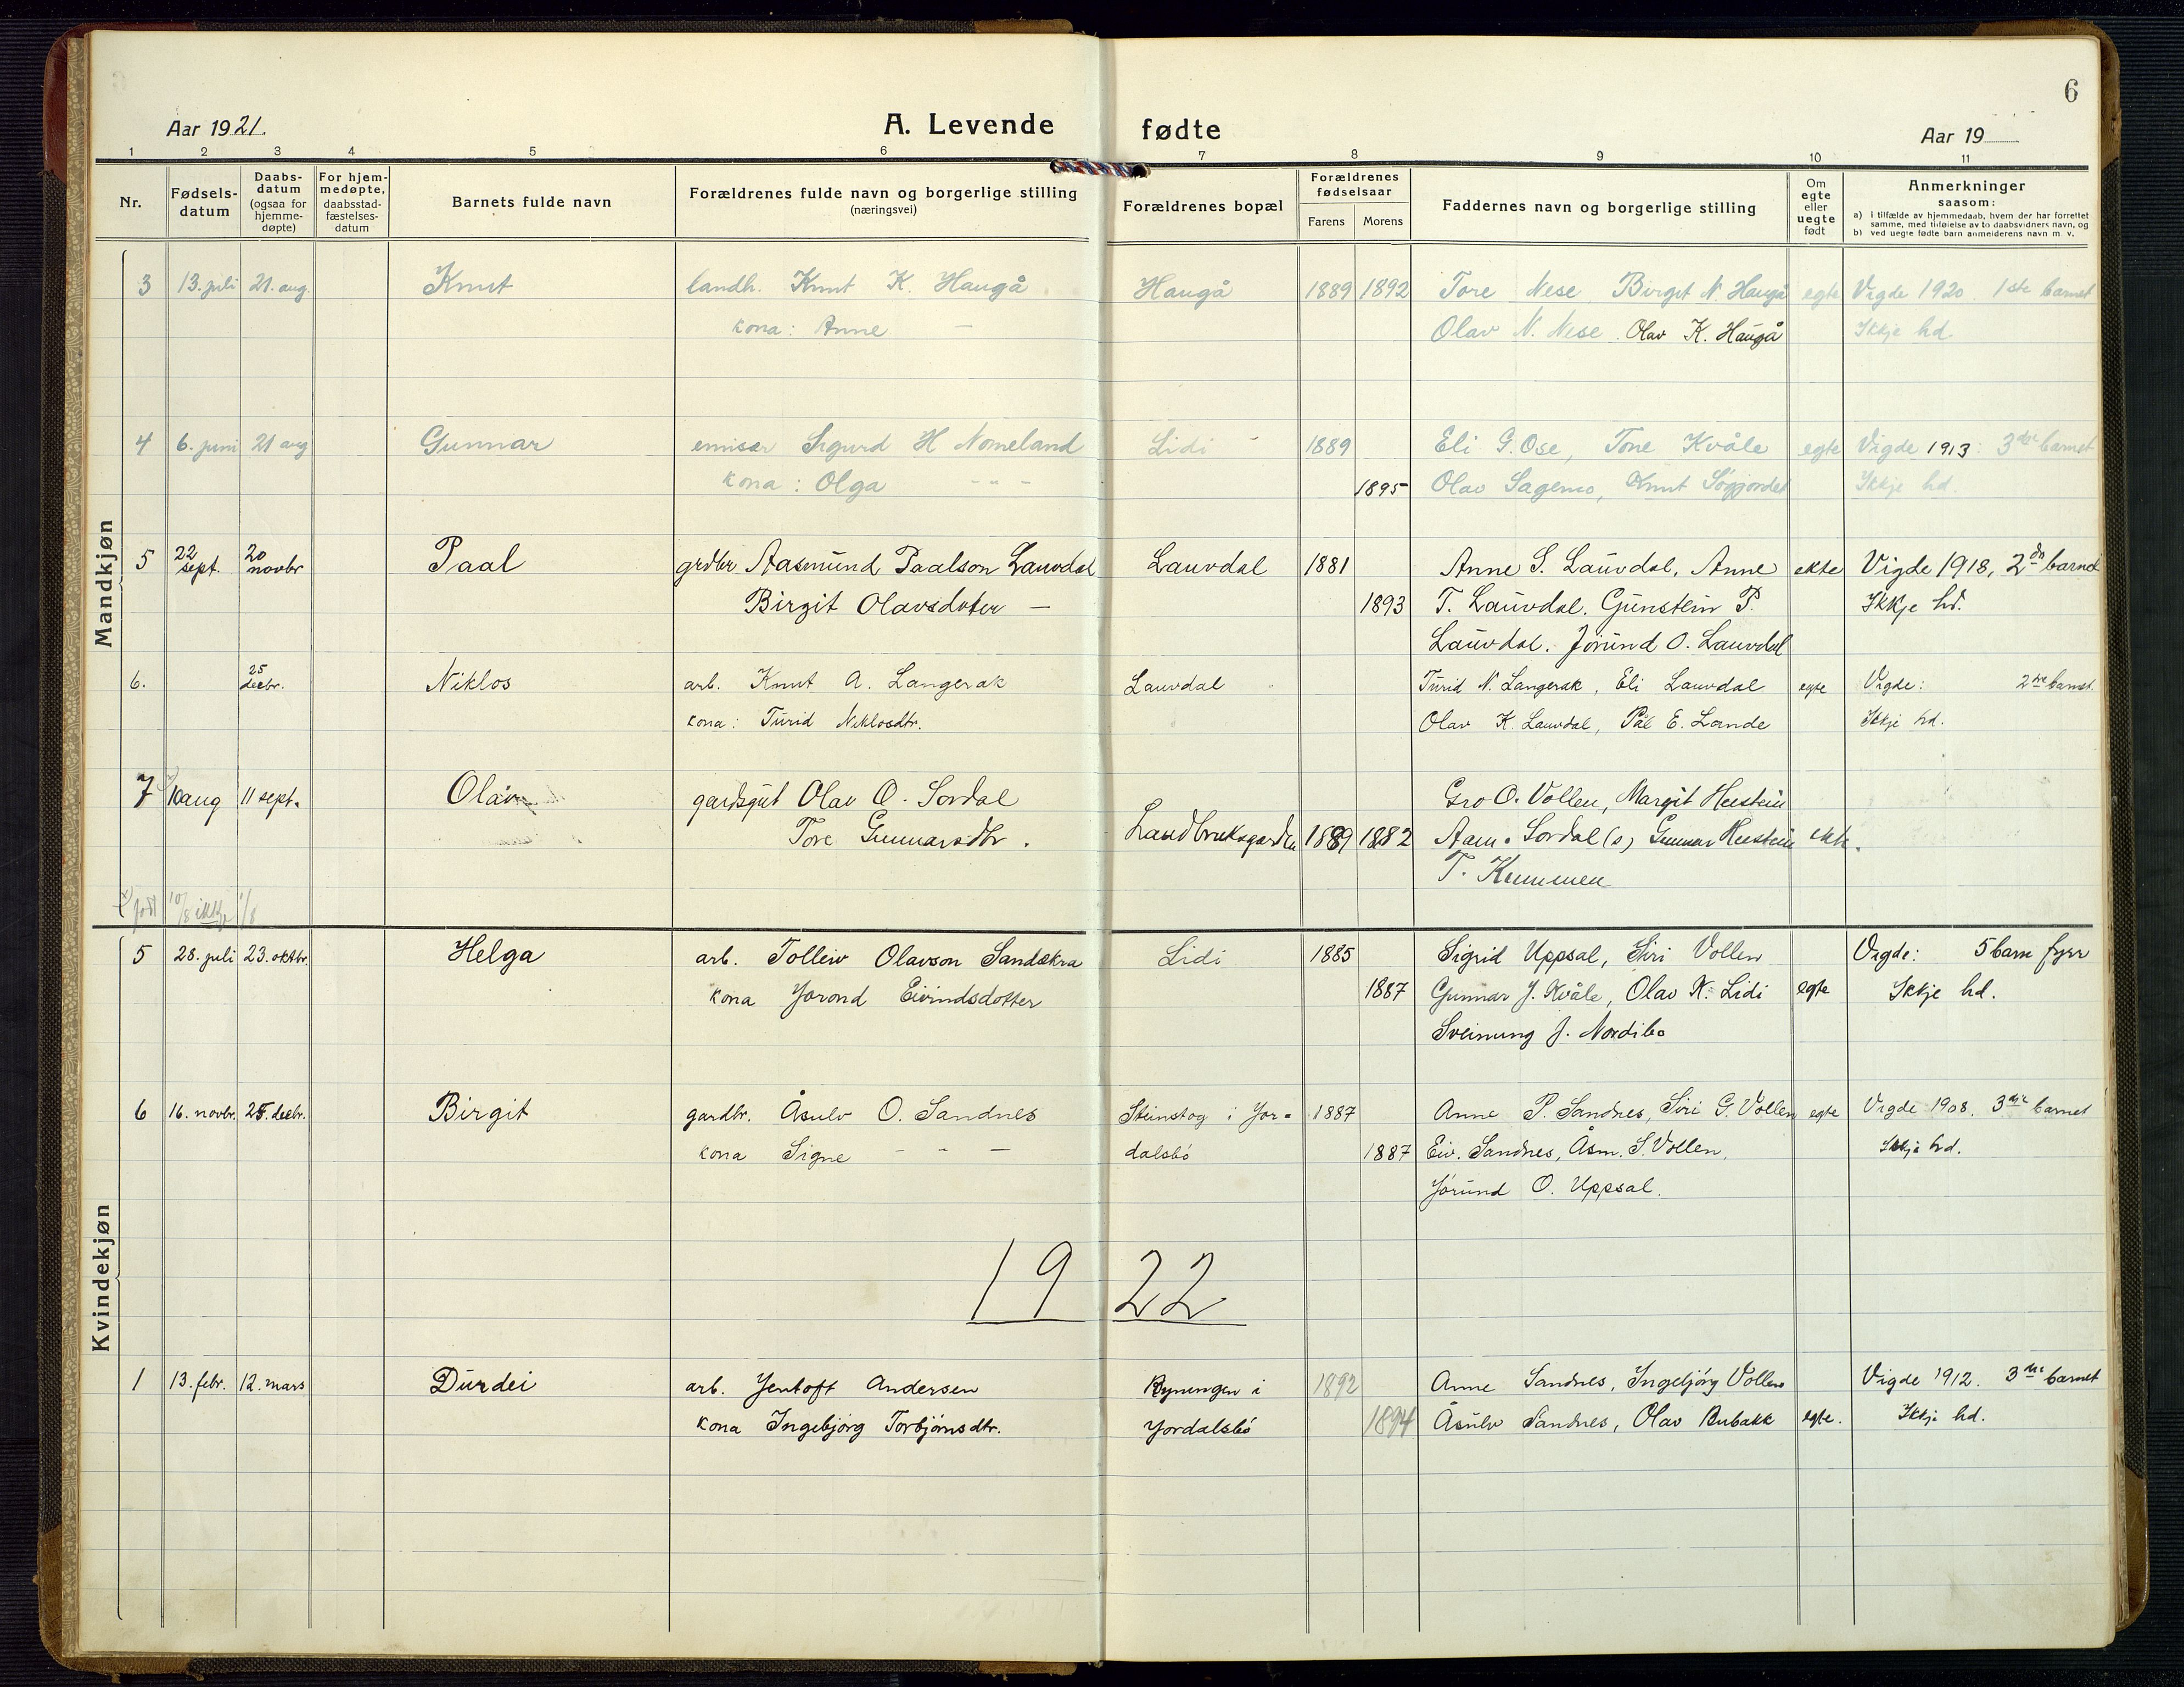 6
Aar 1921. A. Levende fødte Aar 19
1 2 3 4 5 6 7 8 9 10 11
Nr.
Fødsels-
datum
Daabs-
datum
(ogsaa for
hjemme-
døpte)
For hjem-
medøpte,
daabsstad-
fæstelses-
datum
Barnets fulde navn
Forældrenes fulde navn og borgerlige stilling
(næringsvei)
Forældrenes bopæl
Forældrenes
fødselsaar
Farens Morens
Faddernes navn og borgerlige stilling
Om
egte
eller
uegte
født
Anmerkninger
saasom:
a) i tilfælde av hjemmedaab, hvem der har forrettet
samme, med tilføielse av to daabsvidners navn, og
b) ved uegte fødte barn anmelderens navn m. v.
Mandkjøn
3 13. juli 21. aug. Knut landh. Knut K. Haugå Haugå 1889 1892 Tore Nese Birgit N. Haugå egte Vigde 1920. 1ste barnet
kona: Anne — Olav N. Nese. Olav K. Haugå Ikkje hd.
4 6. juni 21 aug Gunnar emisær Sigurd H Nomeland Lidi 1889 Eli G. Ose, Tone Kvåle egte Vigde 1913: 3dje barnet
kona: Olga - " - 1895 Olav Sagemo, Knut Søgjordet Ikkje hd.
5 22 sept. 20 novbr Paal grdbr Aasmund Paalson Lauvdal Lauvdal 1881 Anne S. Lauvdal, Anne ekte Vigde 1918, 2dn barnet
Birgit Olavsdoter — 1893 T. Lauvdal. Gunstein P. Ikkje hd.
Lauvdal. Jorund O. Lauvdal
6. 25 decbr. Niklos arb. Knut A. Langerak Lauvdal Turid N. Langerak, Eli Lauvdal egte Vigde: 2ne barnet.
kona: Turid Niklosdtr. Olav K. Lauvdal, Pål E. Lande Ikkje hd.
7 10 aug 11 sept. Olav gardsgut Olav O. Sordal Gro O. Vollen, Margit Heistein
Tore Gunnarsdtr. Landbruksgarden 1889 1882 Aam. Sordal (s) Gunnar Heistein ekte.
T. Kummen
x) født 10/8 ikkje 1/8
Kvindekjøn
5 28. juli 23. oktbr. Helga arb. Tolleiv Olavson Sandskra Lidi 1885 Sigrid Uppsal, Siri Vollen Vigde: 5 barn fyrr
kona Jorond Eivindsdotter 1887 Gunnar J. Kvåle, Olav K. Lidi egte Ikkje hd.
Sveinung J. Nordibø
6 16. novbr. 25. decbr. Birgit gardbr. Åsulv O. Sandnes Steinstog i Jor- 1887 Anne P. Sandnes, Siri G. Vollen egte Vigde 1908. 3dje barnet
kona Signe - " - dalsbø 1887 Eiv. Sandnes, Åsm. S. Vollen. Ikkje hd.
Jorund O. Uppsal.
19 22
1 13. febr. 12. mars Durdei arb. Jentoft Andersen Ryningen i 1892 Anne Sandnes, Ingebjørg Vollen Vigde 1912. 3dje barnet
kona Ingebjørg Torbjørnsdtr. Jordalsbø 1894 Åsulv Sandnes, Olav Bubakk egte. Ikkje hd.